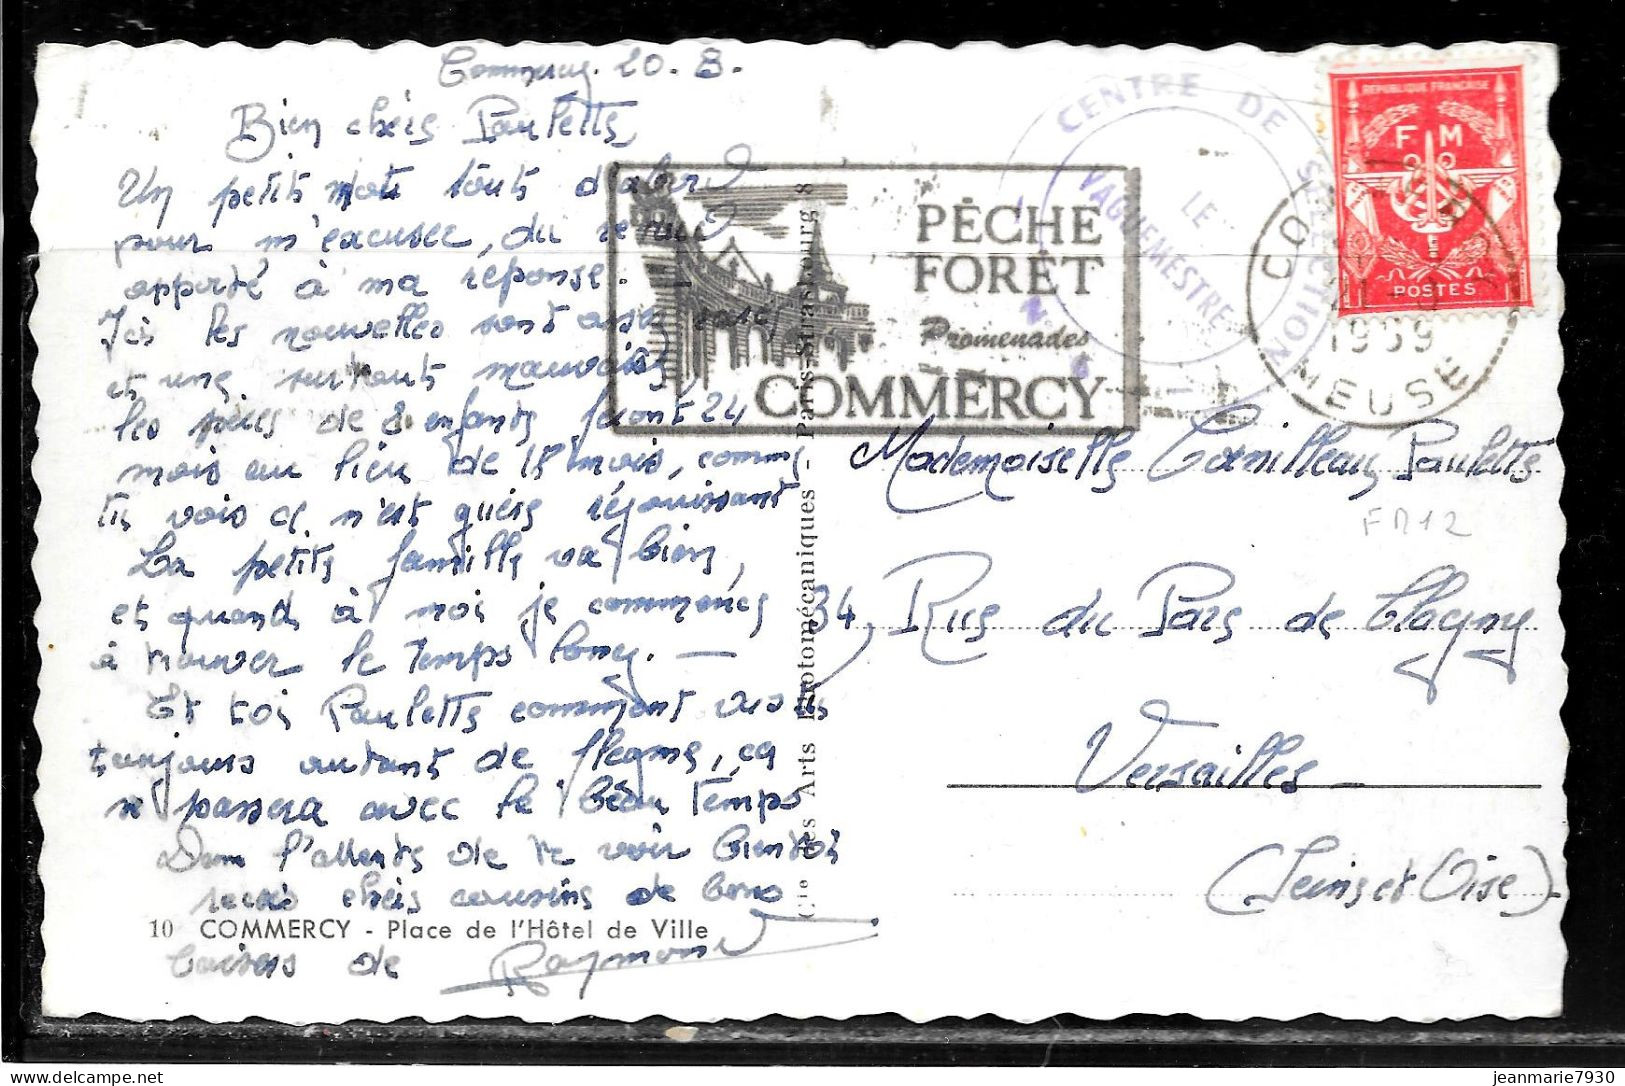 Commercy. 20. 8.
Bien chère Paulette,
Un petit mot tout d'abord
pour m'excuser, du retard
apporté à ma réponse.
Ici les nouvelles sont assez rares
et une surtout mauvaise,
les pères de 2 enfants feront 24
mois au lieu de 18 mois, comme
tu vois ce n'est guère réjouissant
La petite famille va bien,
et quand à moi je commence
à trouver le temps long. —
Et toi Paulette comment vas tu
toujours autant de flegme, ça
se passera avec le beau temps
Dans l'attente de te voir bientôt
reçois chère cousine de bons
10 COMMERCY - Place de l'Hôtel de Ville
baisers de Raymond
Cie des Arts Photomécaniques - Paris-Strasbourg 8
PÊCHE
FORÊT
Promenades
COMMERCY
CENTRE DE SÉLECTION N
LE
VAGUEMESTRE
RÉPUBLIQUE FRANÇAISE
F M
POSTES
1959
MEUSE
Mademoiselle Cornilleau Paulette
FM12
34, Rue du Parc de Clagny
Versailles —
(Seine et Oise)
jeanmarie7930